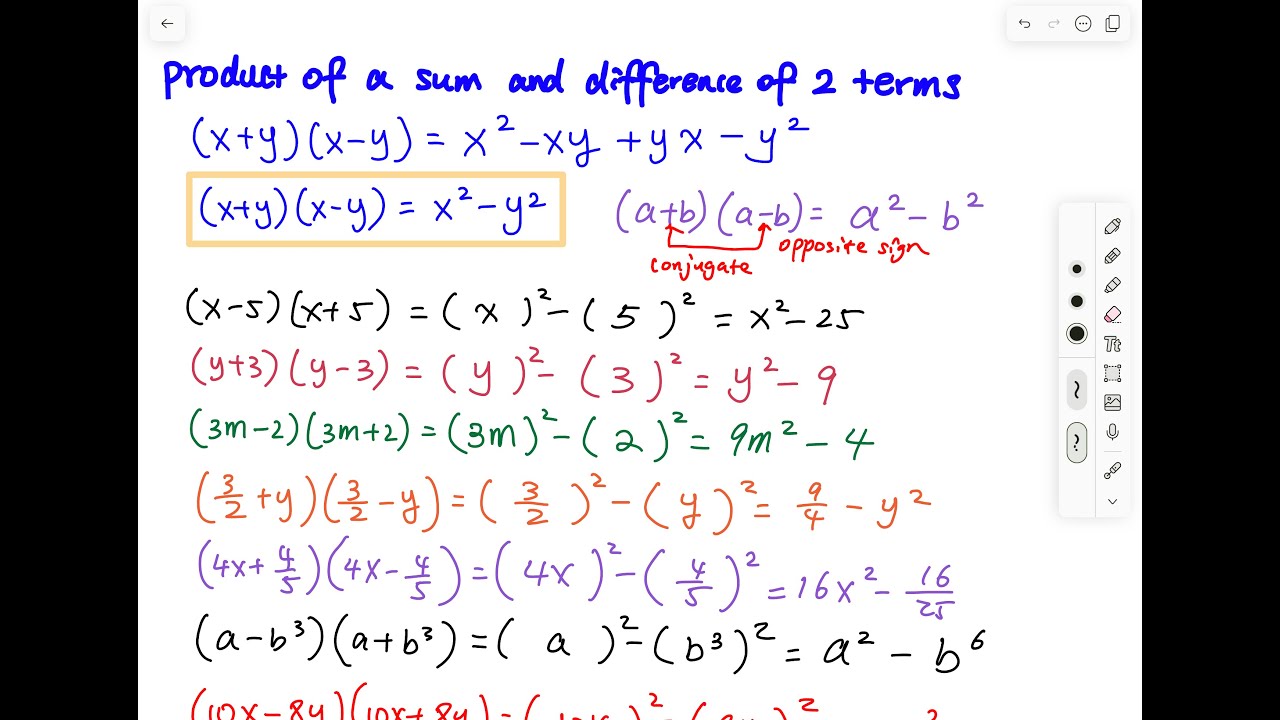 product of a sum and difference of 2 terms
(x+y)(x-y) = x² - xy + yx - y²
(x+y)(x-y) = x² - y²
(a+b)(a-b) = a² - b²
opposite sign
conjugate
(x-5)(x+5) = ( x )² - ( 5 )² = x² - 25
(y+3)(y-3) = ( y )² - ( 3 )² = y² - 9
(3m-2)(3m+2) = (3m)² - ( 2 )² = 9m² - 4
(3/2 + y)(3/2 - y) = ( 3/2 )² - ( y )² = 9/4 - y²
(4x + 4/5)(4x - 4/5) = ( 4x )² - ( 4/5 )² = 16x² - 16/25
(a-b³)(a+b³) = ( a )² - (b³)² = a² - b⁶
(10x-8y)(10x+8y) =
Tt